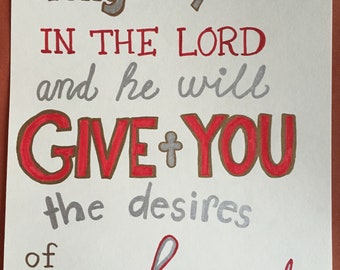 IN THE LORD
and he will
GIVE YOU
the desires
of